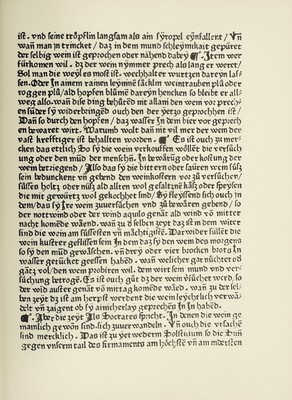 ist. vnd seine tröpflin langsam als am syropel eynfallent / Vñ
wañ man in trincket / daz in dem mund schleymikait gepüret
der selbig wein ist geprochen oder nahend dabey. Item wer
fürkomen wil. dz der wein nymmer prech als lang er weret /
Sol man die weyl es most ist. wechhalter wurtzen dareyn laſ-
sen. Oder In ainem rainen leymine säcklin weintrauben plü oder
roggen plü / ald hopfen blůme dareyn hencken so bleibt er all-
weg also. wañ dise ding behüted mit allam den wein vor prech-
en süder sy widerbringēd ouch den der yetzo geprochen ist /
Dañ so durch den hopfen / daz wasser In dem bier vor geprech
en bewaret wirt. Warumb wolt dañ mit vil mer der wein der
vast krefftiger ist behalten worden. Es ist ouch zů mer-
cken das etlich. So sy die wein verkouffen wöllēt die versůch
ung oder den müd der menschñ. In bewärūg oder kostung der
wein betriegend / Also das sy die bittern oder sauren wein süß
sein bedunckenn vñ gebend den weinkostern vor zů versůchen /
süssen holtz oder nüß ald alltem wol gesaltzne käß / oder speysen
die mit gewürtz wol gekochhet sind / Sy fleyssend sich ouch in
dem / das sy Ire wein zůuersůchen vnd zů bewären gebend / so
der nottwind oder der wind aquilo genāt ald wind võ mitter
nacht komēde wäend. wañ zů d selben zeyt daz ist in dem witter
sind die wein am süssesten vñ mächtigiste. Darwider süllēt die
wein kuster geflissen sein In dem daz sy den wein des morgens
so sy den müd gewäschen. vñ drey oder vier brocken brots In
wasser gerücket geessen habēd. wañ welicher gar nüchter oð
gātz vol / den wein probieren wil. dem wirt sein mund vnd ver-
sůchung betrogē. Es ist ouch gůt dz der wein vsůchet werd / so
der wid auster genāt võ mittag komēde wäed. wañ zů der sel-
ben zeyt dz ist am herpst werdent die wein leychtlich verwā-
delt vñ zaigent ob sy aimcherlay geprechen In In habēd.
Aber die zeyt Als Socrates spricht. In denen die wein ge
mainlich gewon sind sich zůuerwandeln. Vñ ouch die vrsachē
sind mercklich. Das ist zů yetwederm Solsticium so die Suñ
gegen vnserm tail des firmaments am höchstē vñ am nidersten